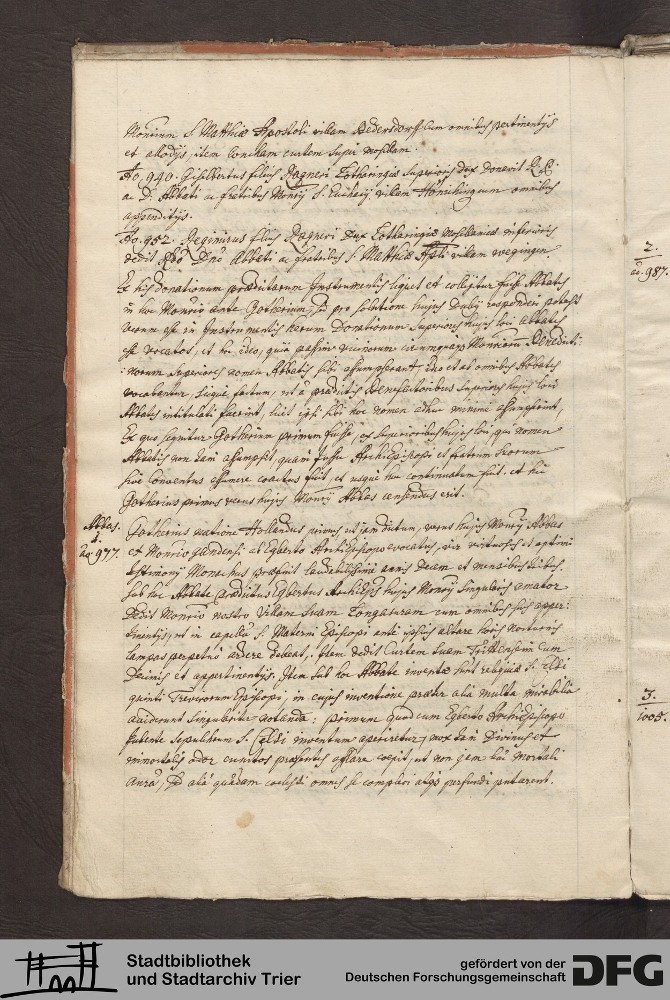 Monrium S. Matthiæ Apostoli villam Bedersdorff cum omnibus pertinentijs
et allodijs, item Conckam curtem supra mosellam.
Ao. 940. Giselbertus filius Ragneri Lotharingiæ superioris Dux donavit R. P.
ac D. Abbati ac fratribus Monrij S. Eucharij villam cum omnibus
appenditijs.
Ao. 952. Reginirus filius Ragneri Dux Lotharingiæ Mosellanicæ inferioris
dedit Rdo Dno Abbati ac fratribus S. Matthiæ Apsti villam wegingen.
Ex his donationum præcitatarum Instrumentis liquet et colligitur fuisse Abbates
in hoc Monrio ante Gotherium, sed pro solutione hujus Dubij responderi potest
verum esse in Instrumentis harum Donationum superiores hujus loci Abbates
esse vocatos, et hoc ideo, quia passim vicinorum Monriorum Benedicti-
:norum superiores nomen Abbatis sibi assumpserant, ideo et ab omnibus Abbates
vocabantur, sicque factum, ut à prædictis Benefactoribus superiores hujus loci
Abbates intitulati fuerint, licet ipsi sibi hoc nomen adhuc minime assumpserint
Ex quo sequitur Gotherium primum fuisse, ex superioribus hujus loci, qui nomen
Abbatis non tam assumpsit, quam jussu Archiepiscopi et fratrum suorum
sive Conventus assumere coactus fuit, et usque huc continuatum fuit. et hic
Gotherius primus verus hujus Monrij Abbas censendus erit.
Abbas.
1.
Ao. 977.
Gotherius natione Hollandus primus ut jam dictum, verus hujus Monrij Abbas
et Monrio gandensi ab Egberto Archiepiscopo evocatus, vir virtuosus et optimi
testimonij Monachus præfuit laudabilissimè annis Decem et mensibus
sub hoc Abbate Prædictus Egbertus Archiëpus hujus Monrij singularis amator
Dedit Monrio nostro villam suam Longuturam cum omnibus suis apper:
tinentijs, ut in capella S. Materni Episcopi ante ipsius altare horis nocturnis
lampas perpetuò ardere debeat. Item dedit Curtem suam Trittenheim cum
Decimis et appertinentijs. Item sub hoc Abbate inventæ sunt reliquiæ S. Celsi
quinti Trevirorum Episcopi, in cujus inventione præter alia multa mirabilia
acciderunt singulariter notanda: primum quod cum Egberto Archiëpiscopo
jubente sepulchrum S. Celsi inventum aperiretur, mox tam Divinus et
immortalis odor cunctos præsentes afflare coepit, ut non jam hac mortali
aura, sed alia quadam coelesti omnes se compleri atque perfundi putarent.
2.
ao. 987.
3.
1005.
Stadtbibliothek
und Stadtarchiv Trier
gefördert von der
Deutschen Forschungsgemeinschaft
DFG